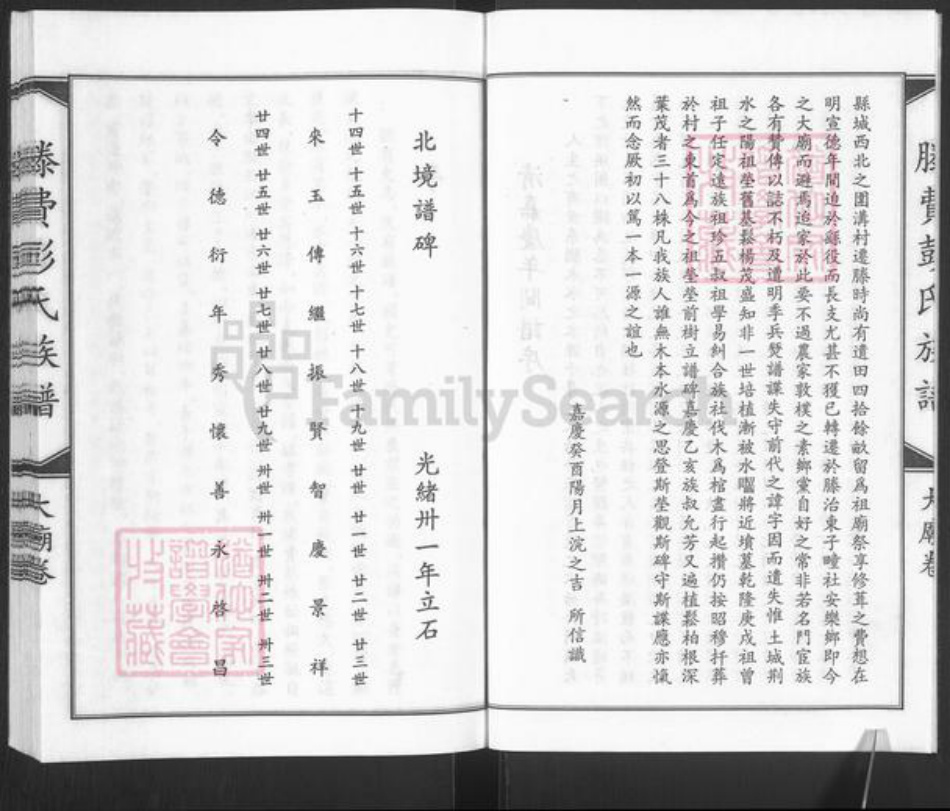 縣城西北之圍溝村遷滕時尚有遺田四拾餘畝留爲祖廟祭享修葺之費想在
明宣德年間迫於繇役而長支尤甚不獲已轉遷於滕治東子疃社安樂鄉即今
之大廟而避焉追家於此要不過農家敦樸之素鄉黨自好之常非若名門宦族
各有贊傳以誌不朽及遭明季兵燹譜諜失守前代之諱字因而遺失惟土城荆
水之陽祖塋舊基鬆楊茂盛知非一世培植漸被水囓將近墳墓乾隆庚戌祖曾
祖子任定遠族祖珍五叔祖學易糾合族社伐木爲棺盡行起攢仍按昭穆扦葬
於村之東首爲今之祖塋塋前樹立譜碑嘉慶乙亥族叔允芳又遍植鬆柏根深
葉茂者三十八株凡我族人誰無木本水源之思登斯塋觀斯碑守斯諜應亦愾
然而念厥初以篤一本一源之誼也
嘉慶癸酉陽月上浣之吉 所信識
北境譜碑 光緒卅一年立石
十四世 十五世 十六世 十七世 十八世 十九世 廿世 廿一世 廿二世 廿三世
來 玉 傳 繼 振 賢 智 慶 景 祥
廿四世 廿五世 廿六世 廿七世 廿八世 廿九世 卅世 卅一世 卅二世 卅三世
令 德 衍 年 秀 懷 善 永 啓 昌
滕費彭氏族譜 大廟卷
滕費彭氏族譜 大廟卷
FamilySearch